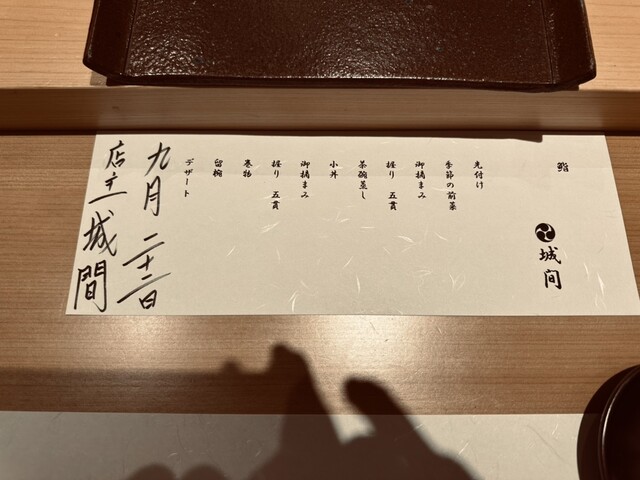 鮨
城間
先付け
季節の前菜
御摘まみ
握り 五貫
茶碗蒸し
小丼
御摘まみ
握り 五貫
巻物
留椀
デザート
九月二十二日
店主 城間